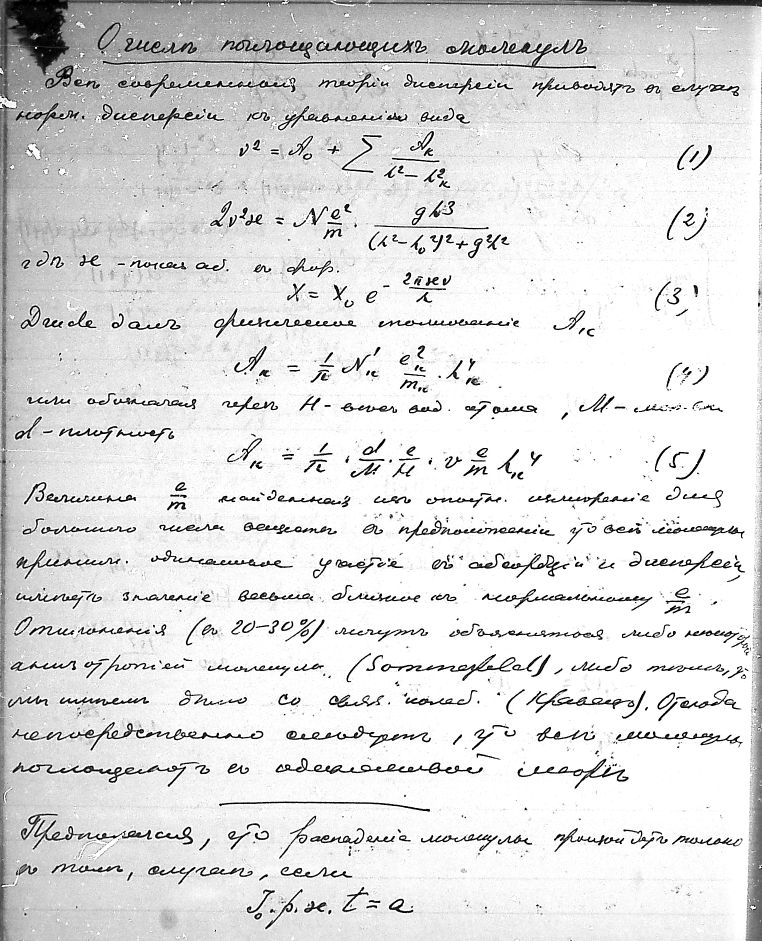 О числѣ поглощающихъ молекулъ
Всѣ современныя теоріи дисперсіи приводятъ въ случаѣ
норм. дисперсіи къ уравненіямъ вида
ν² = A₀ + ∑ Aκ / (λ² − λ²κ) (1)
2ν²ϰ = N e²/m · gλ³ / ((λ² − λ₀²)² + g²λ² (2)
гдѣ ϰ - показ аб. въ фор.
X = X₀ e^(− 2πϰν/λ) (3)
Drude далъ физическое толкованіе Aκ
Aκ = 1/π N'κ e²κ/mκ · λ⁴κ (4)
или обозначая черезъ H - вѣсъ вод. атома, M -
d - плотность
Aκ = 1/π · d/M · e/H · ν e/m λκ⁴ (5)
Величина e/m найденная изъ опытн. измѣреніе для
большого числа веществъ въ предположеніи что всѣ молекулы
приним. одинаковое участіе въ абсорбціи и дисперсіи,
имѣетъ значеніе весьма близкое къ нормальному e/m.
Отклоненія (въ 20-30%) могутъ объясняться либо некоторой
анизотропіей молекулы (Sommerfeld), либо тѣмъ, что
мы имѣемъ дѣло со связ. колеб. (Кравецъ). Отсюда
непосредственно слѣдуетъ, что всѣ молекулы
поглощаютъ въ одинаковой мѣрѣ
Предполагая, что распаденіе молекулы произойдетъ только
въ томъ, случаѣ, если
J₀.p.ϰ. t = a